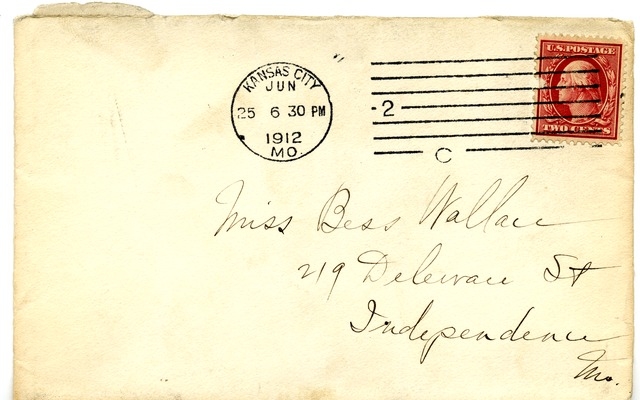 KANSAS CITY
JUN
25 6 30 PM
1912
MO.
2
C
U.S. POSTAGE
TWO CENTS
Miss Bess Wallace
219 Delewau St
Independence
Mo.